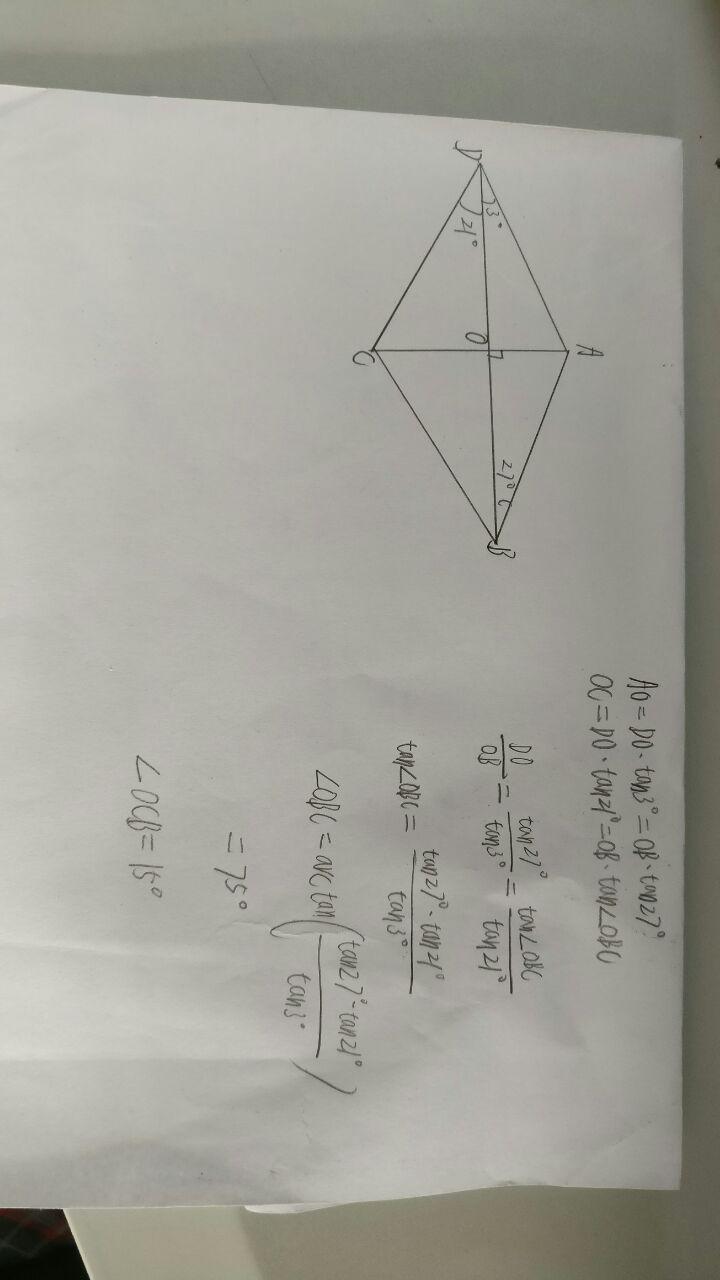 A
D
3°
21°
O
27°
B
C
AO = DO · tan3° = OB · tan27°
OC = DO · tan21° = OB · tan∠OBC
DO/OB = tan27°/tan3° = tan∠OBC/tan21°
tan∠OBC = tan27° · tan21°/tan3°
∠OBC = arctan(tan27° · tan21°/tan3°)
= 75°
∠OCB = 15°